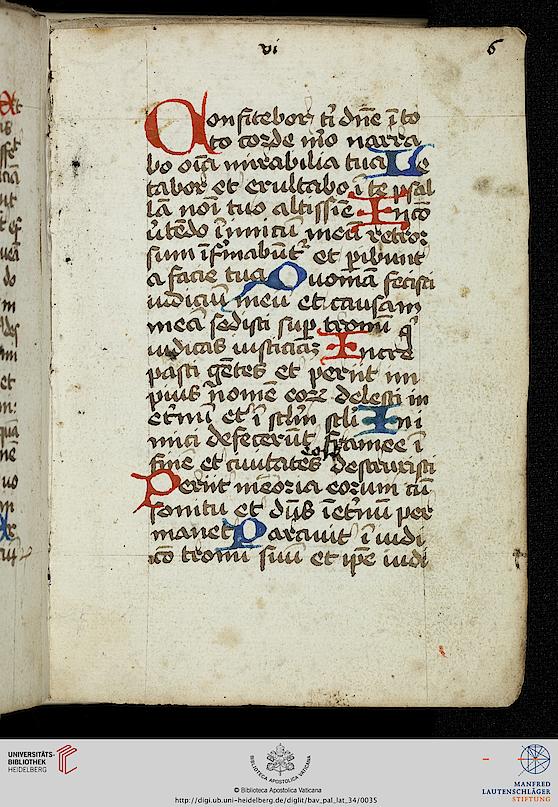 vi
6
Confitebor ti dn̄e ī to
to corde m̄o narra
bo oīa mirabilia tua Le
tabor et exultabo ī te psal
lā noī tuo altissīe In cō
ūtēdo īimicū meū retror
sum īfirmabūt᷑ et p̲ibunt
a facie tua Quoniā fecisti
iudiciū meū et causam
meā sedisti sup̲ tronū q
iudicas iusticiaȝ Incre
pasti gētes et periit im
pius nomē eoꝝ delesti in
et̄nū et ī sc̄lm̄ sc̄li Ini
mici defecerūt framee ī
finē et ciuitates eoꝝ destruxisti
Periit mēoria eorum cū
sonitu et dn̄s ī et̄nū per
manet Parauit ī iudi
cō tronū suū et ip̄e iudi
UNIVERSITÄTS-
BIBLIOTHEK
HEIDELBERG
BIBLIOTECA APOSTOLICA VATICANA
© Biblioteca Apostolica Vaticana
http://digi.ub.uni-heidelberg.de/diglit/bav_pal_lat_34/0035
MANFRED
LAUTENSCHLÄGER
STIFTUNG